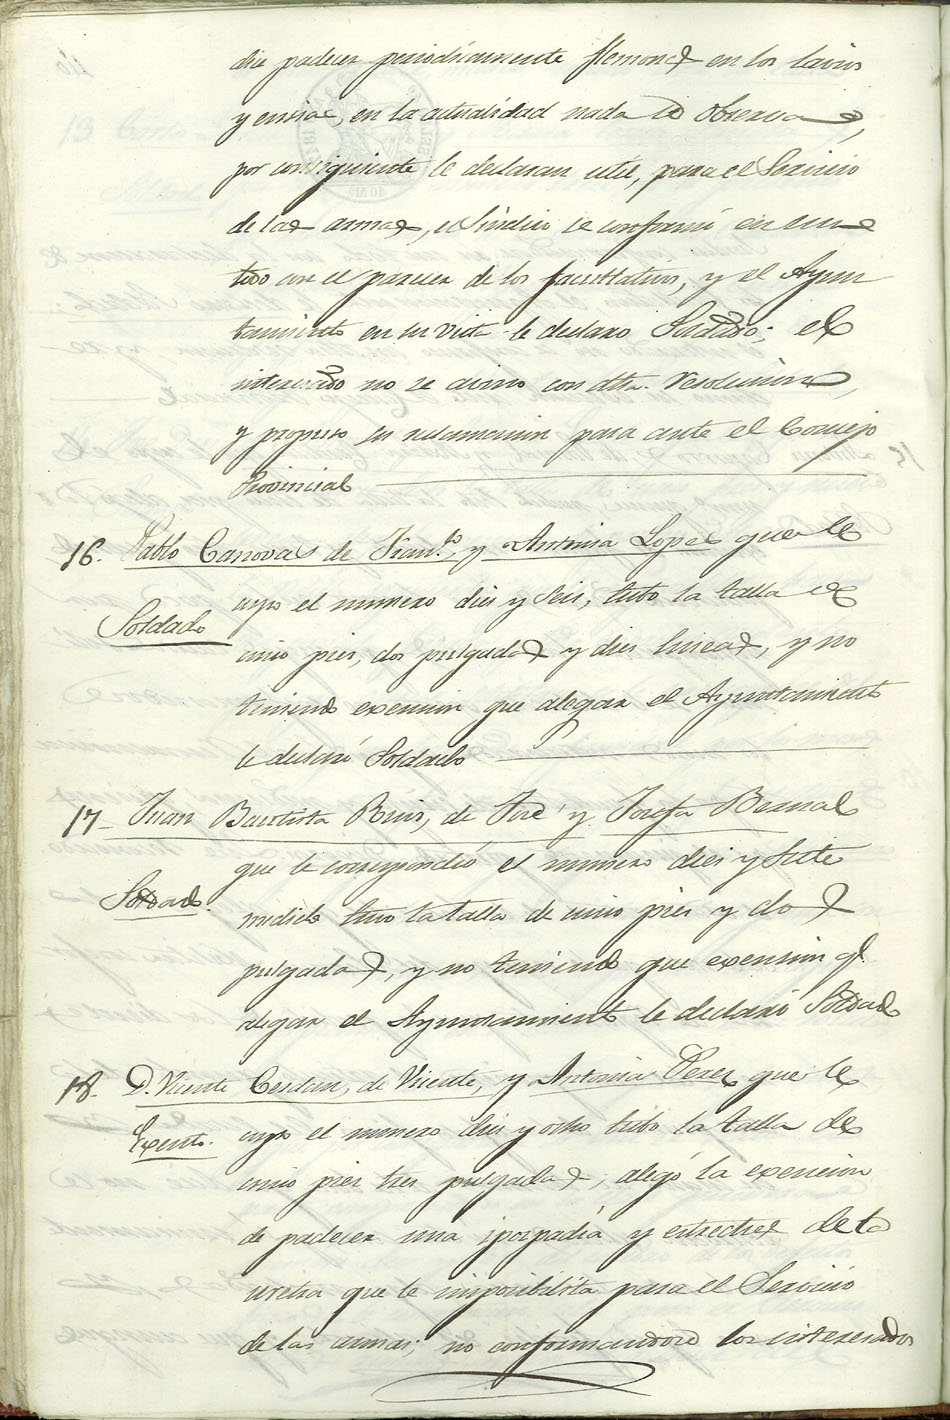 dice padecer periodicamente flemones en los labios
y encias, en la actualidad nada se observa,
por consiguiente le declaran util, para el Servicio
de las armas, el Sindico se conformó en un
todo con el parecer de los facultativos, y el Ayun
tamiento en su vista le declaro Soldado; el
interesado no se avino con dha. resolucion,
y propuso su reclamacion para ante el Consejo
Provincial
16. Pablo Canovas de Fran.co, y Antonia Lopes que le
Soldado
cupo el numero dies y seis, tubo la talla de
cinco pies, dos pulgadas y dies lineas, y no
teniendo exencion que alegar el Ayuntamiento
le declaró Soldado
17 Juan Bautista Ruis, de José y Josefa Bernal
que le correspondió el numero dies y siete
Soldado.
medido tuvo la talla de cinco pies y dos
pulgadas, y no teniendo que exencion q.
alegar el Ayuntamiento le declaró Soldado
18. D. Vicente Cerdan, de Vicente, y Antonia Peres que le
Exento.
cupo el numero dies y ocho tubo la talla de
cinco pies tres pulgadas, alegó la exencion
de padecer una ipospadia y estreches de la
uretra que le imposibilita para el Servicio
de las armas; no conformandose los interesados